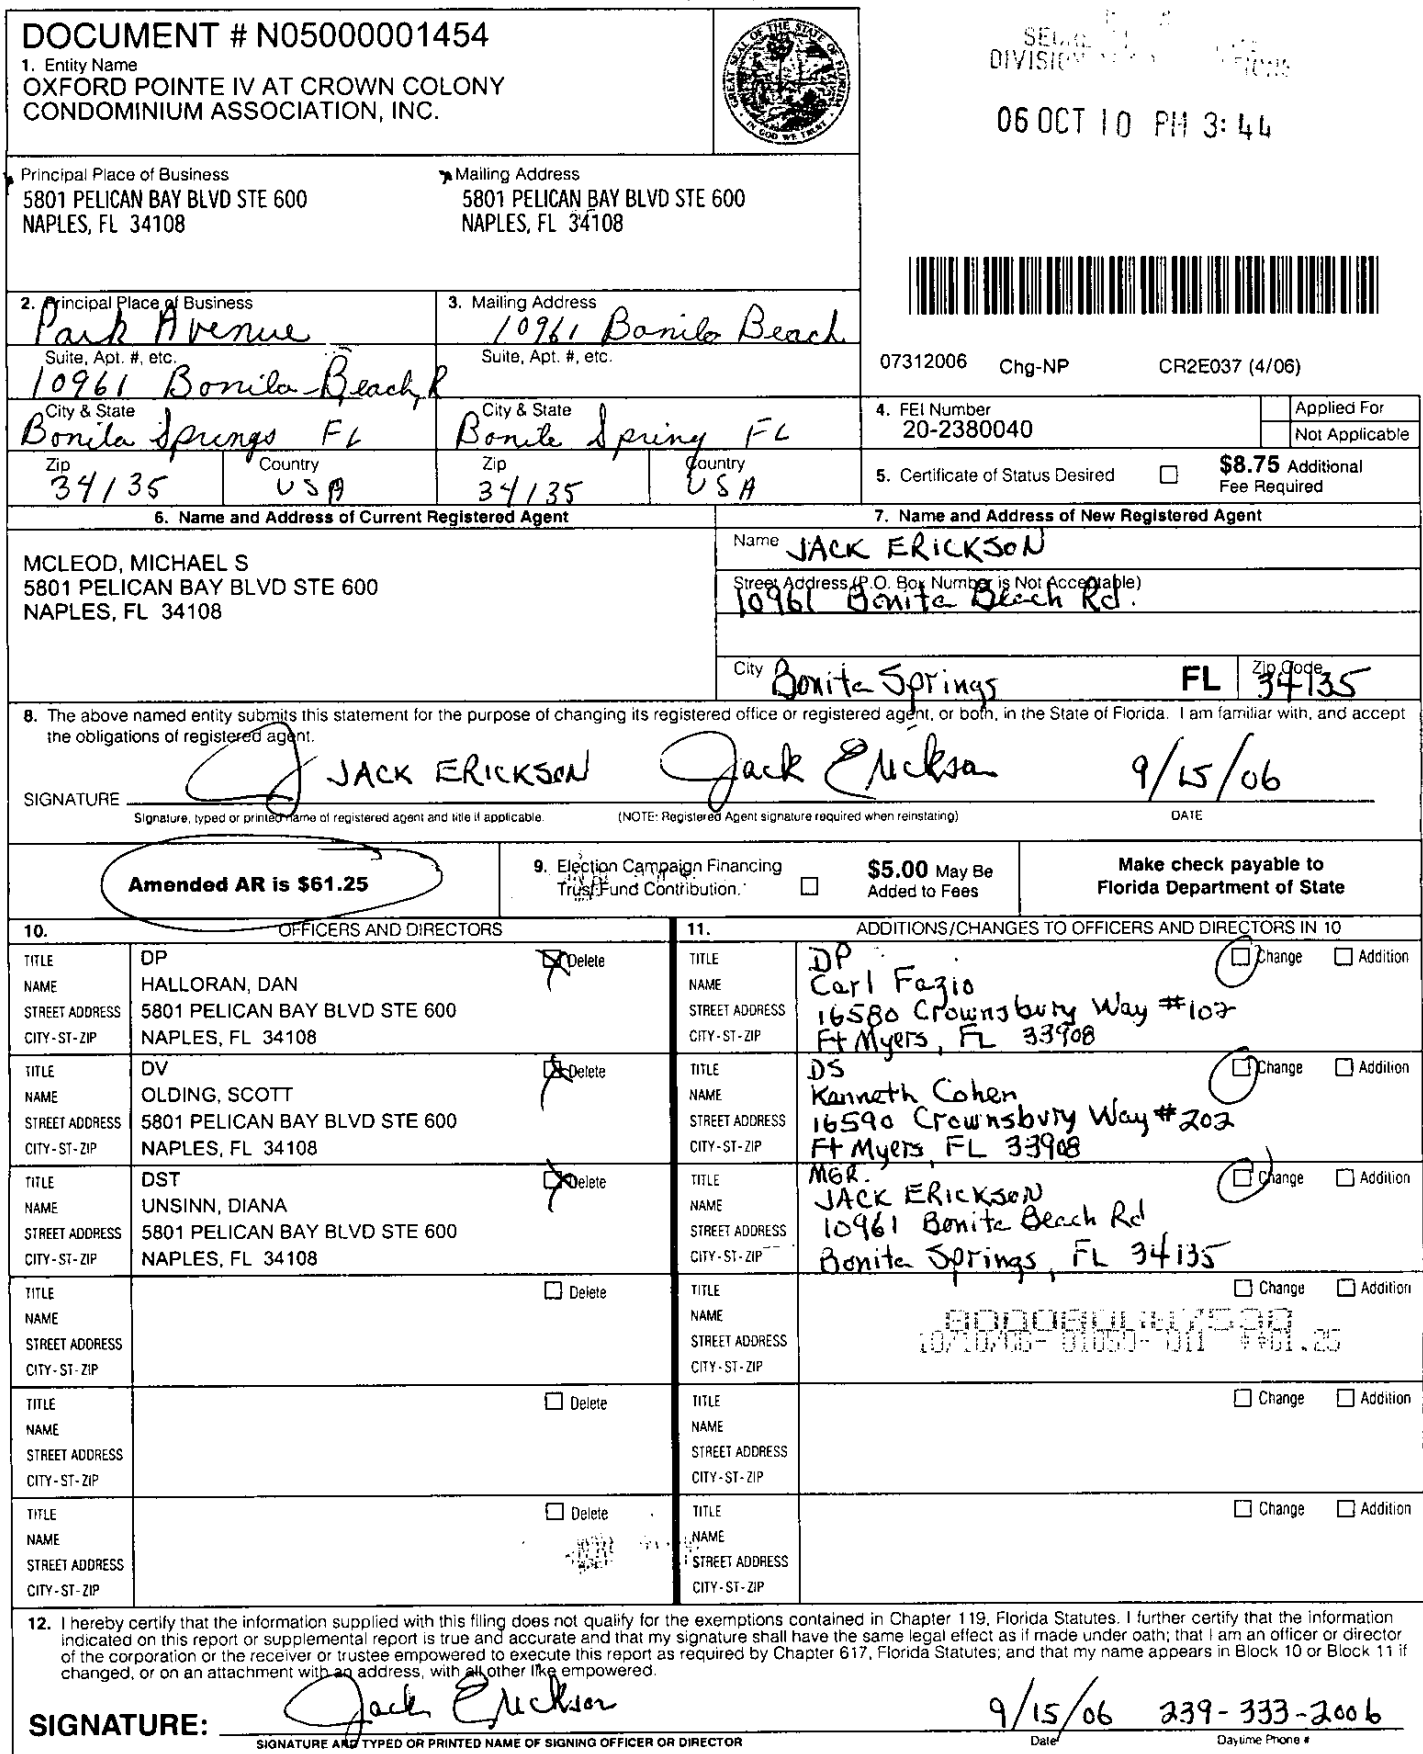 DOCUMENT # N05000001454
1. Entity Name
OXFORD POINTE IV AT CROWN COLONY
CONDOMINIUM ASSOCIATION, INC.
GREAT SEAL OF THE STATE OF FLORIDA
IN GOD WE TRUST
DIVISION
06 OCT 10 PM 3:44
Principal Place of Business
5801 PELICAN BAY BLVD STE 600
NAPLES, FL 34108
Mailing Address
5801 PELICAN BAY BLVD STE 600
NAPLES, FL 34108
2. Principal Place of Business
Park Avenue
Suite, Apt. #, etc.
10961 Bonita Beach R
City & State
Bonita Springs FL
Zip
34135
Country
USA
3. Mailing Address
10961 Bonita Beach
Suite, Apt. #, etc.
City & State
Bonita Spring FL
Zip
34135
Country
USA
07312006 Chg-NP CR2E037 (4/06)
4. FEI Number
20-2380040
Applied For
Not Applicable
5. Certificate of Status Desired
$8.75 Additional
Fee Required
6. Name and Address of Current Registered Agent
MCLEOD, MICHAEL S
5801 PELICAN BAY BLVD STE 600
NAPLES, FL 34108
7. Name and Address of New Registered Agent
Name JACK ERICKSON
Street Address (P.O. Box Number is Not Acceptable)
10961 Bonita Beach Rd.
City Bonita Springs FL Zip Code 34135
8. The above named entity submits this statement for the purpose of changing its registered office or registered agent, or both, in the State of Florida. I am familiar with, and accept
the obligations of registered agent.
SIGNATURE JACK ERICKSON Jack Erickson 9/15/06
Signature, typed or printed name of registered agent and title if applicable. (NOTE: Registered Agent signature required when reinstating) DATE
Amended AR is $61.25
9. Election Campaign Financing
Trust Fund Contribution.
$5.00 May Be
Added to Fees
Make check payable to
Florida Department of State
10. OFFICERS AND DIRECTORS
TITLE DP Delete
NAME HALLORAN, DAN
STREET ADDRESS 5801 PELICAN BAY BLVD STE 600
CITY-ST-ZIP NAPLES, FL 34108
TITLE DV Delete
NAME OLDING, SCOTT
STREET ADDRESS 5801 PELICAN BAY BLVD STE 600
CITY-ST-ZIP NAPLES, FL 34108
TITLE DST Delete
NAME UNSINN, DIANA
STREET ADDRESS 5801 PELICAN BAY BLVD STE 600
CITY-ST-ZIP NAPLES, FL 34108
TITLE Delete
NAME
STREET ADDRESS
CITY-ST-ZIP
TITLE Delete
NAME
STREET ADDRESS
CITY-ST-ZIP
TITLE Delete
NAME
STREET ADDRESS
CITY-ST-ZIP
11. ADDITIONS/CHANGES TO OFFICERS AND DIRECTORS IN 10
TITLE DP Change Addition
NAME Carl Fazio
STREET ADDRESS 16580 Crownsbury Way #102
CITY-ST-ZIP Ft Myers, FL 33908
TITLE DS Change Addition
NAME Kenneth Cohen
STREET ADDRESS 16590 Crownsbury Way #202
CITY-ST-ZIP Ft Myers, FL 33908
TITLE MGR. Change Addition
NAME JACK ERICKSON
STREET ADDRESS 10961 Bonita Beach Rd
CITY-ST-ZIP Bonita Springs, FL 34135
TITLE Change Addition
NAME
STREET ADDRESS 10/10/06- 01050- 011 **61.25
CITY-ST-ZIP
TITLE Change Addition
NAME
STREET ADDRESS
CITY-ST-ZIP
TITLE Change Addition
NAME
STREET ADDRESS
CITY-ST-ZIP
12. I hereby certify that the information supplied with this filing does not qualify for the exemptions contained in Chapter 119, Florida Statutes. I further certify that the information
indicated on this report or supplemental report is true and accurate and that my signature shall have the same legal effect as if made under oath; that I am an officer or director
of the corporation or the receiver or trustee empowered to execute this report as required by Chapter 617, Florida Statutes; and that my name appears in Block 10 or Block 11 if
changed, or on an attachment with an address, with all other like empowered.
SIGNATURE: Jack Erickson 9/15/06 239-333-2006
SIGNATURE AND TYPED OR PRINTED NAME OF SIGNING OFFICER OR DIRECTOR Date Daytime Phone #